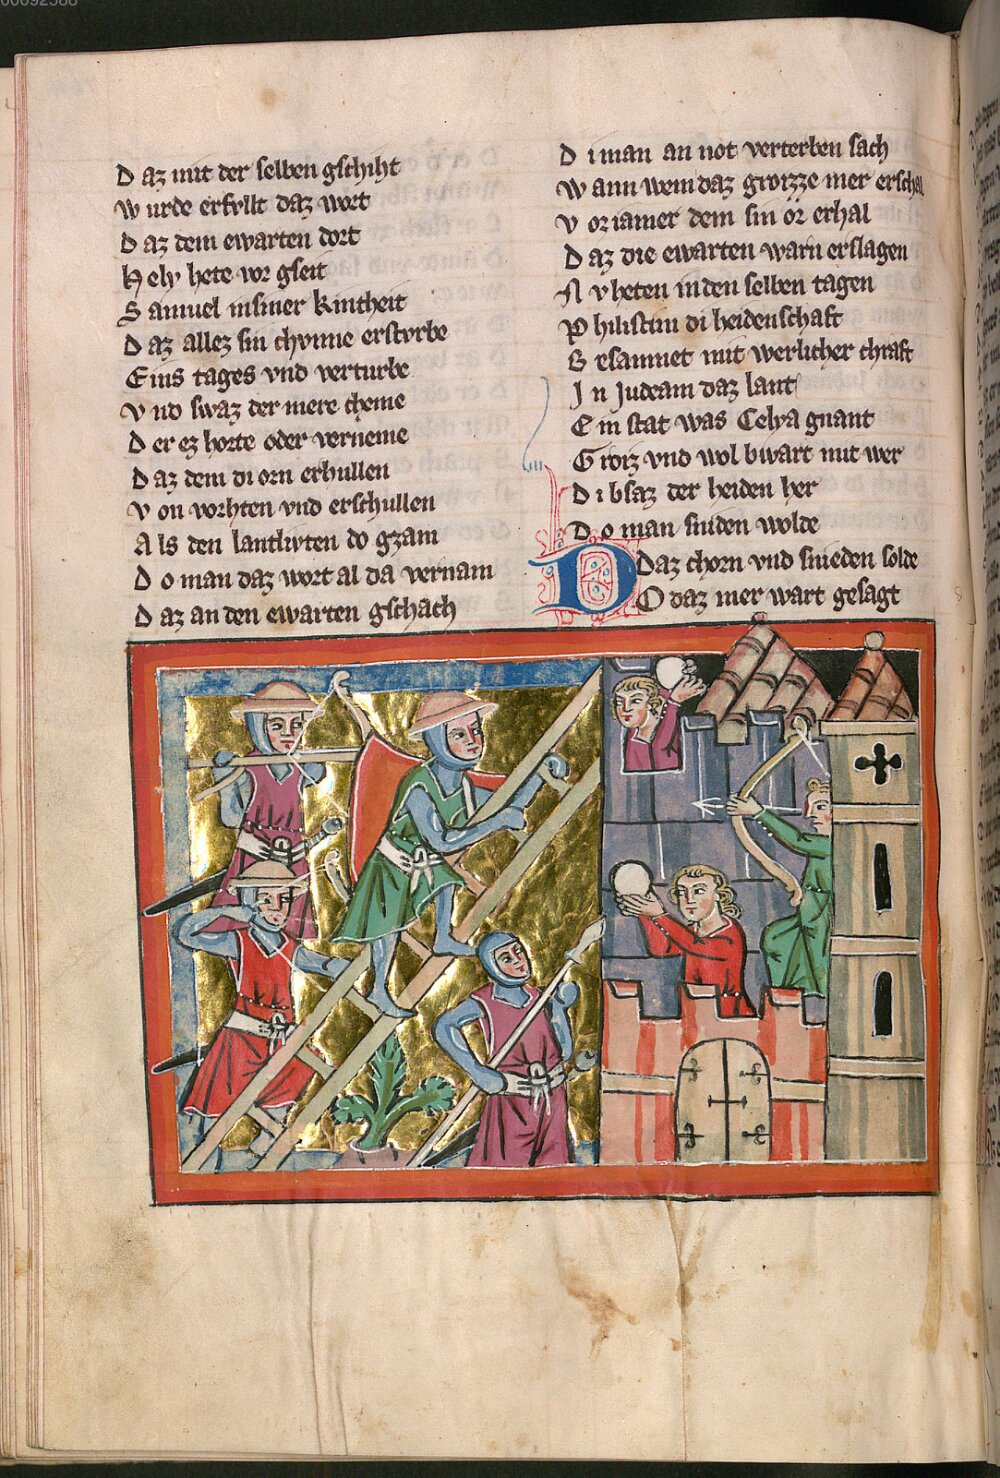 00092588
D az mit der selben gschiht
W urde erfvllt daz wort
D az dem ewarten dort
H ely hete vor gseit
S amuel insiner kintheit
D az allez sin chvnne ersturbe
E ins tages vnd verturbe
V nd swaz der mere cheme
D er ez horte oder verneme
D az dem di orn erhullen
V on vorhten vnd erschullen
A ls den lantlivten do gzam
D o man daz wort al da vernam
D az an den ewarten gschach
D i man an not verterben sach
W ann wem daz groizze mer erschal
V or iamer dem sin or erhal
D az die ewarten warn erslagen
N v heten in den selben tagen
P hilistim di heidenschaft
G esamnet mit werlicher chraft
I n Judeam daz lant
E in stat was Celya gnant
G roiz vnd wol bwart mit wer
D i bsaz der heiden her
D o man sniden wolde
Daz chorn vnd snieden solde
D O daz mer wart gesagt